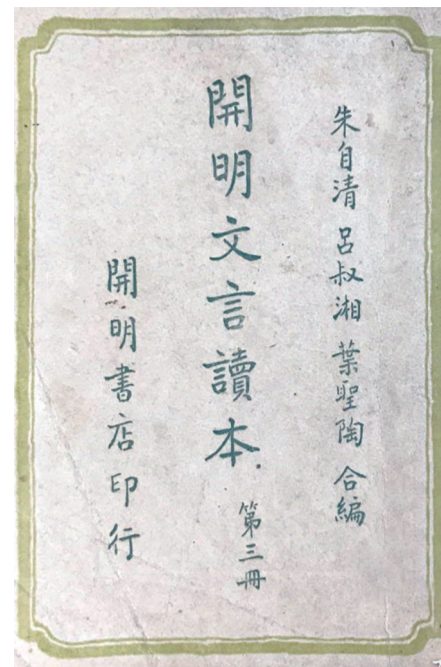 朱自清 呂叔湘 葉聖陶 合編
開明文言讀本
第三冊
開明書店印行